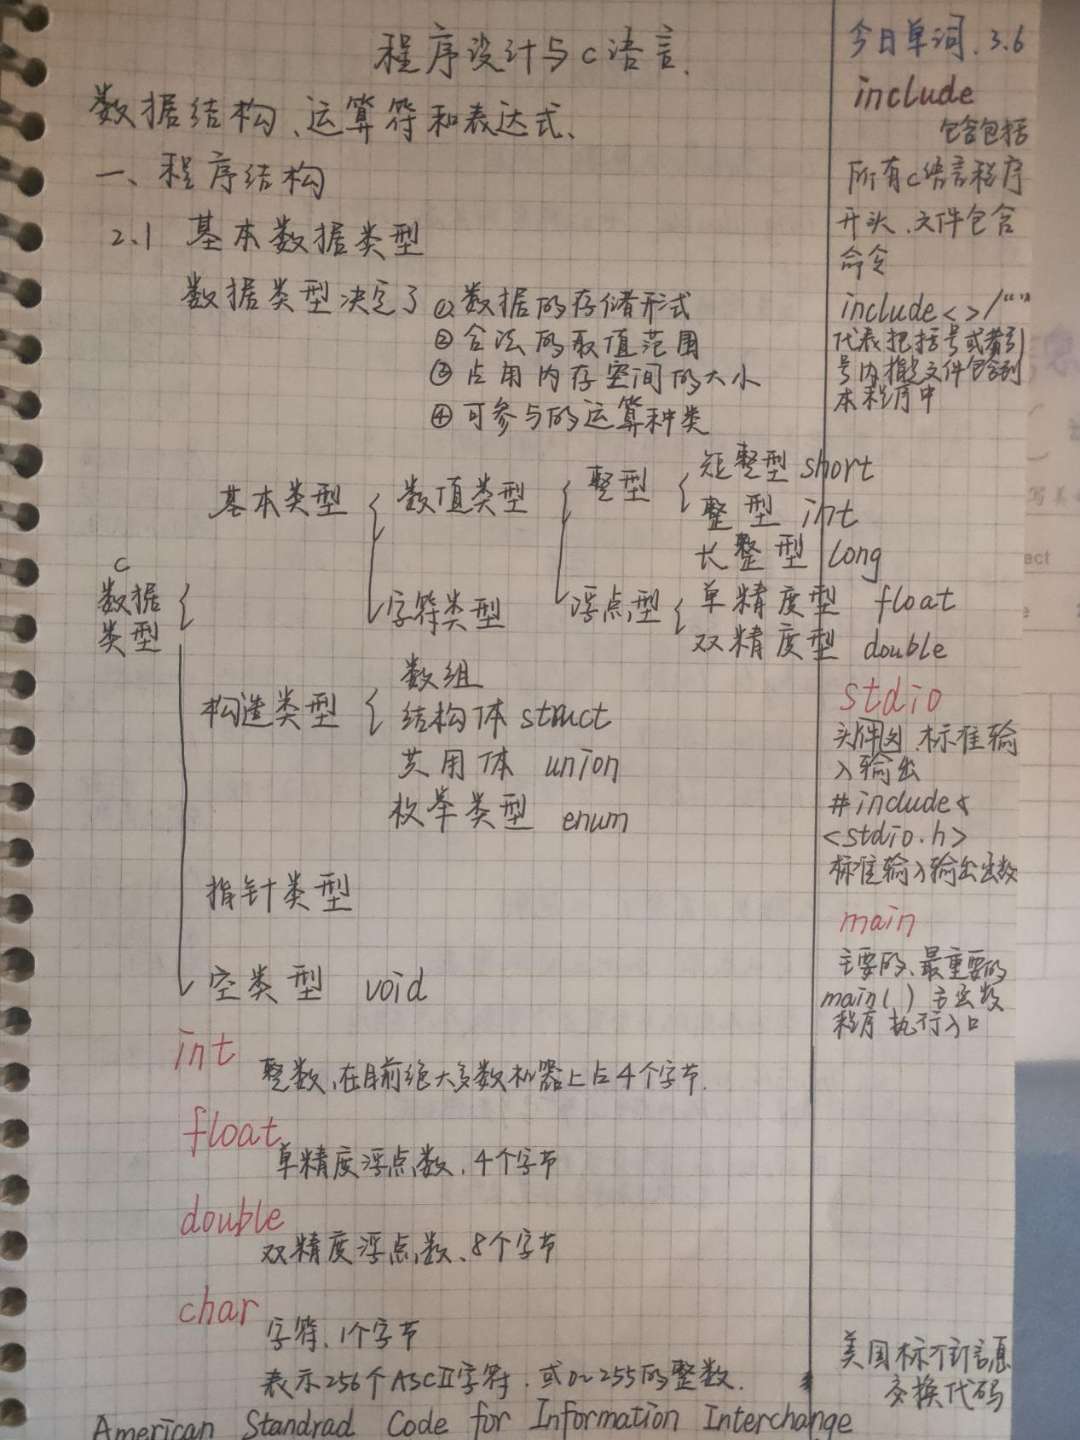 程序设计与c语言.
数据结构、运算符和表达式、
一、程序结构
2.1 基本数据类型
数据类型决定了 ①数据的存储形式
②合法的取值范围
③占用内存空间的大小
④可参与的运算种类
C
数据
类型
基本类型
数值类型
整型
短整型 short
整型 int
长整型 long
浮点型
单精度型 float
双精度型 double
字符类型
构造类型
数组
结构体 struct
共用体 union
枚举类型 enum
指针类型
空类型 void
int
整数、在目前绝大多数机器上占4个字节.
float
单精度浮点数、4个字节
double
双精度浮点数、8个字节
char
字符、1个字节
表示256个ASCII字符、或0~255的整数.
American Standrad Code for Information Interchange
今日单词、3.6
include
包含包括
所有c语言程序
开头、文件包含
命令
include< >/“ ”
代表把括号或引
号内文件包含到
本程序中
stdio
头文件、标准输
入输出
#include
<stdio.h>
标准输入输出函数
main
主要的、最重要的
main( ) 主函数
程序执行入口
美国标准信息
交换代码